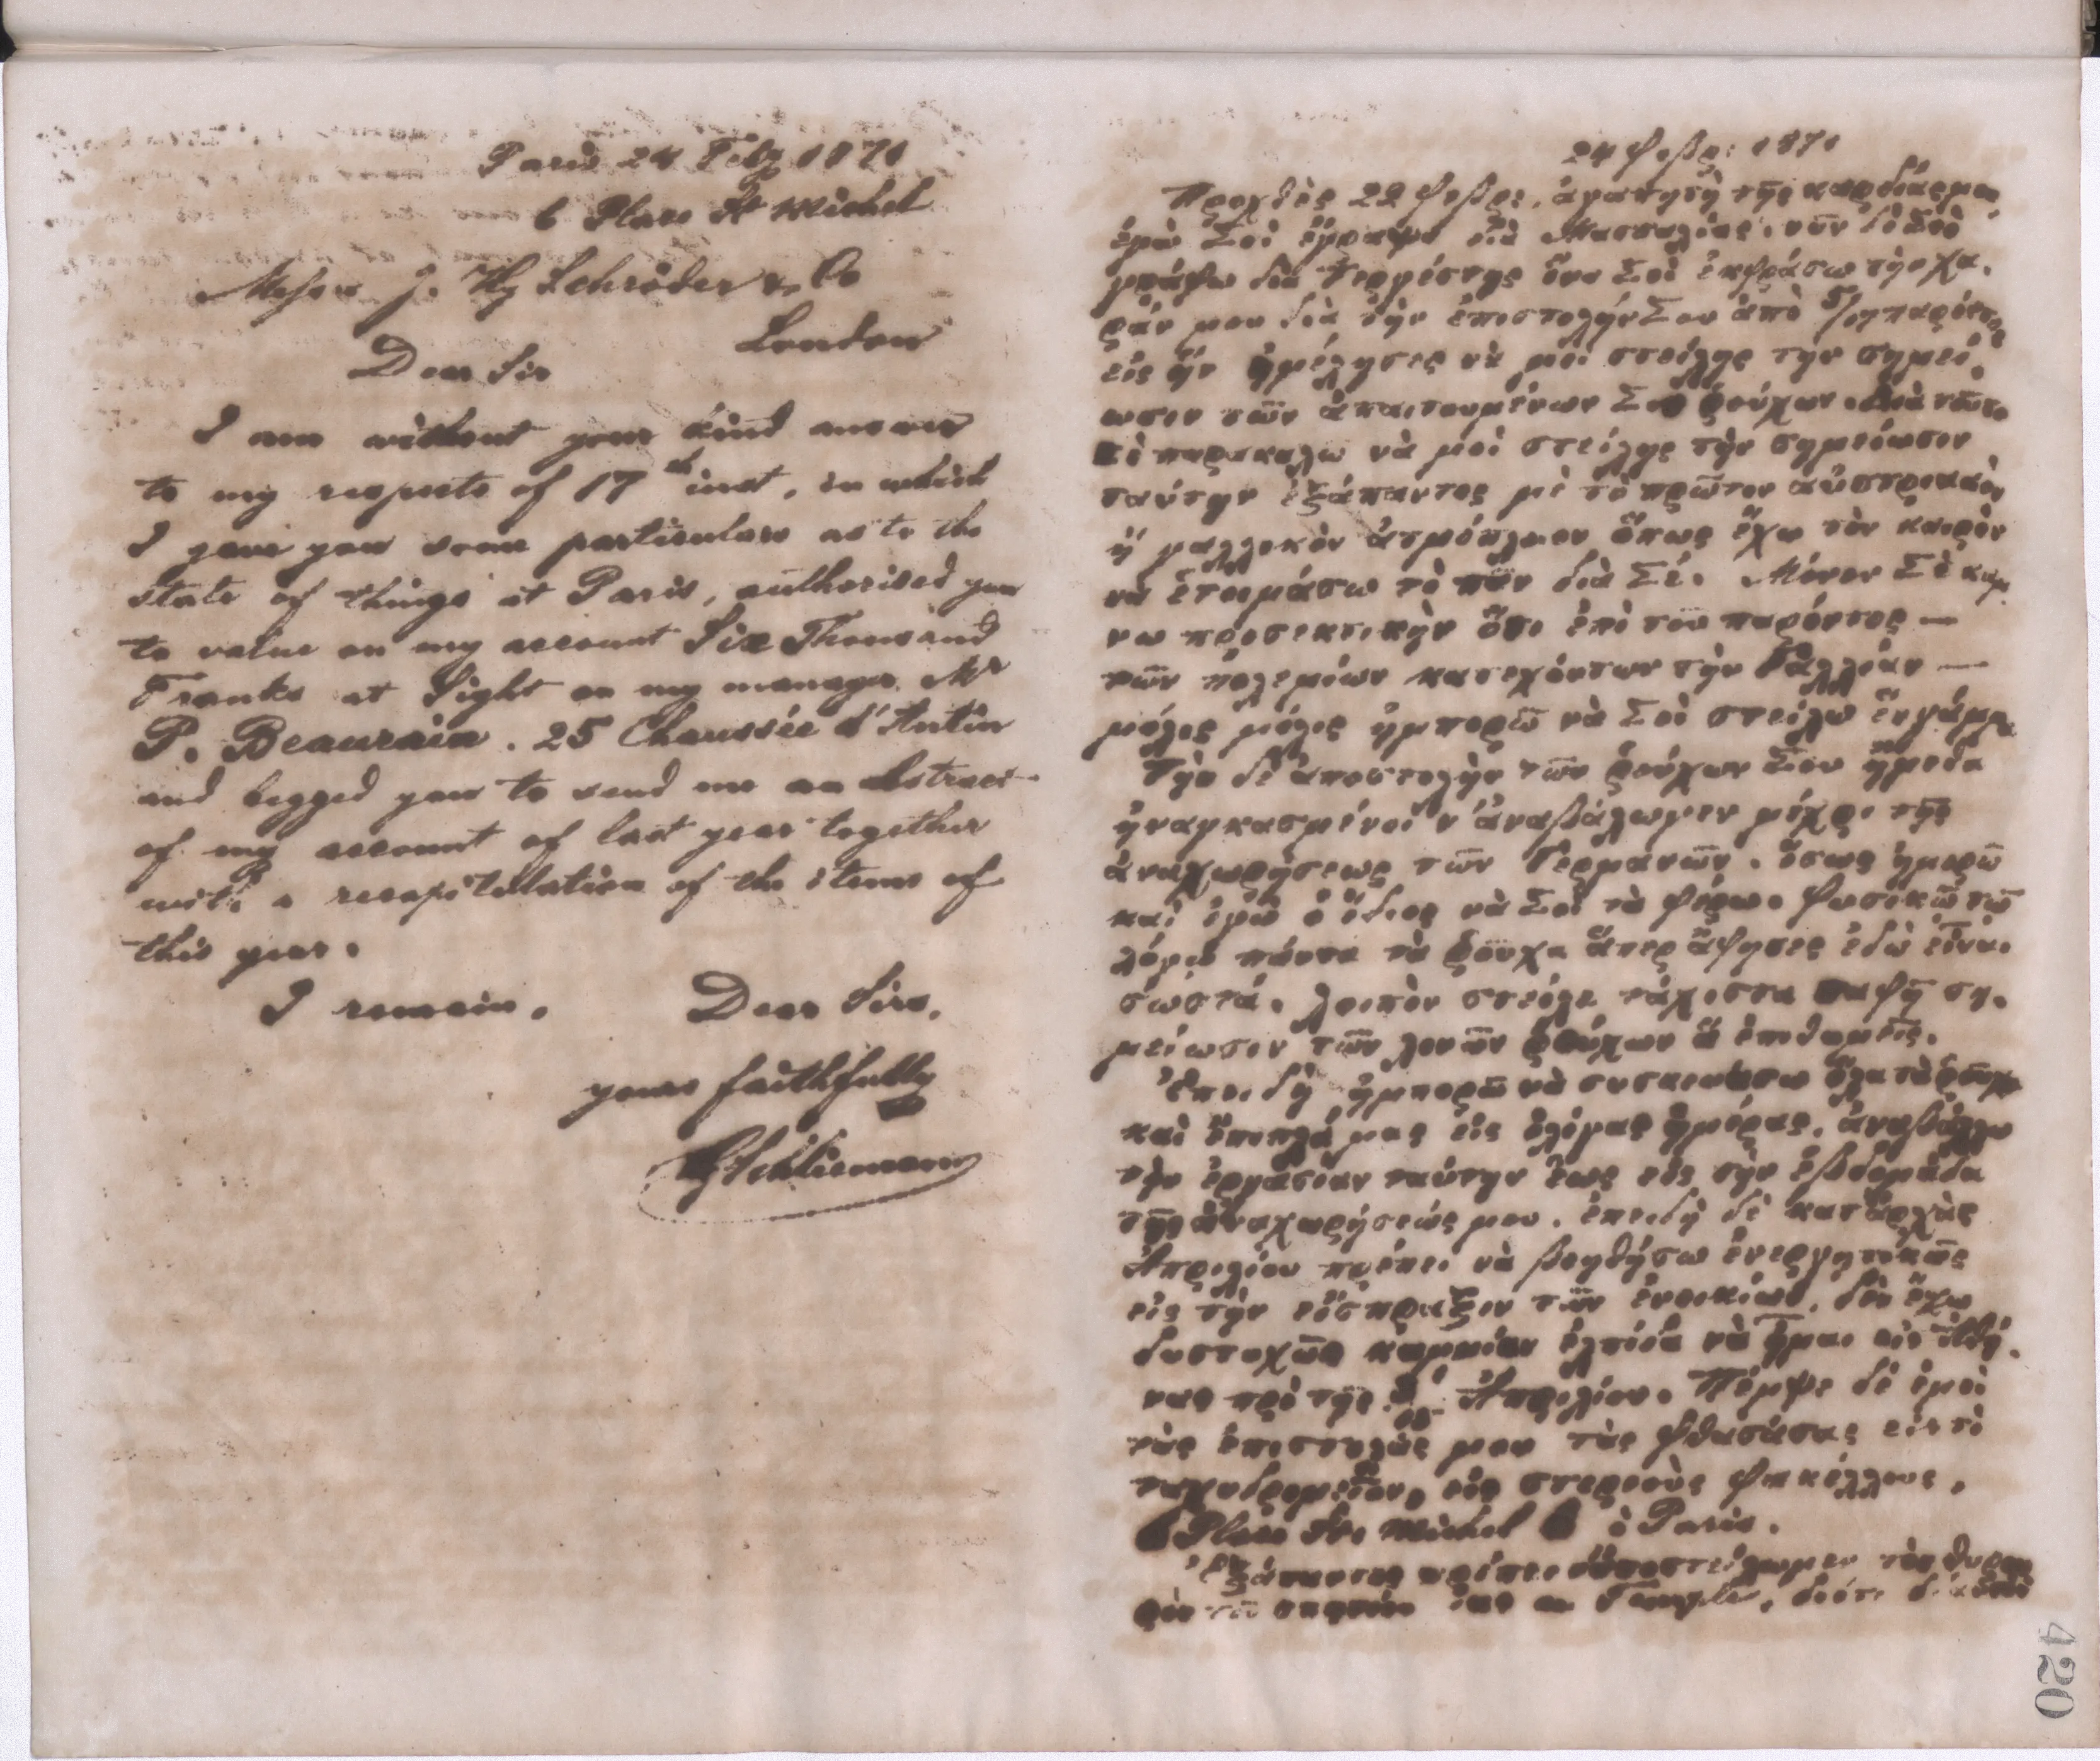 Paris 24 Feby 1871
6 Place St Michel
Messrs J. Hy Schröder & Co
London
Dear Sir
I am without your kind answer
to my respects of 17th inst, in which
I gave you some particulars as to the
state of things at Paris, authorised you
to value on my account Six Thousand
Franks at Sight on my manager Mr
P. Beaurain. 25 Chaussée d'Antin
and begged you to send me an abstract
of my account of last year together
with a recapitulation of the items of
this year.
I remain, Dear Sirs,
yours faithfully
HySchliemann
24 Φεβρ: 1871
Προχθὲς 22 Φεβρ. ἀγαπητὴ τῆς καρδίας μου,
ἐγὼ Σοὶ ἔγραψα διὰ Μασσαλίας, νῦν δὲ Σοὶ
γράφω διὰ Τεργέστης ἵνα Σοὶ ἐκφράσω τὴν χα-
ράν μου διὰ τὴν ἐπιστολήν Σου ἀπὸ
εἰς ἣν ἠμέλησες νὰ μοὶ στείλῃς τὴν σημεί-
ωσιν τῶν ἀπαιτουμένων Σοι ῥούχων. διὰ τοῦτο
Σὲ παρακαλῶ νὰ μοὶ στείλῃς τὴν σημείωσιν
ταύτην ἐξάπαντος μὲ τὸ πρῶτον αὐστριακὸν
ἢ γαλλικὸν ἀτμόπλοιον ὅπως ἔχω τὸν καιρὸν
νὰ ἑτοιμάσω τὸ πᾶν διὰ Σέ. Μόνον Σὲ κάμ-
νω προσεκτικὴν ὅτι ἐπὶ τοῦ παρόντος —
τῶν πολεμίων κατεχόντων τὴν Γαλλίαν —
μόλις μόλις ἠμπορῶ νὰ Σοὶ στείλω ἓν γράμμα.
Τὴν δὲ ἀποστολὴν τῶν ῥούχων Σου ἤμεθα
ἠναγκασμένοι ν' ἀναβάλωμεν μέχρι τῆς
ἀναχωρήσεως τῶν Γερμανῶν. ἴσως ἠμπορῶ
καὶ ἐγὼ ὁ ἴδιος νὰ Σοὶ τὰ φέρω. Φυσικῷ τῷ
λόγῳ πάντα τὰ ῥοῦχα ἅπερ ἄφησες ἐδῶ εἶναι
σωστά. λοιπὸν στεῖλε τάχιστα σαφῆ ση-
μείωσιν τῶν λοιπῶν ῥούχων ἃ ἐπιθυμεῖς.
Ἐπειδὴ ἠμπορῶ νὰ ὅλα τὰ ῥοῦχα
καὶ ἔπιπλά μας εἰς ὀλίγας ἡμέρας, ἀναβάλλω
τὴν ἐργασίαν ταύτην ἕως εἰς τὴν ἑβδομάδα
τῆς ἀναχωρήσεώς μου. ἐπειδὴ δὲ κατ' ἀρχὰς
Ἀπριλίου πρέπει νὰ βοηθήσω ἐνεργητικῶς
εἰς τὴν εἴσπραξιν τῶν ἐνοικίων, δὲν ἔχω
δυστυχῶς καμμίαν ἐλπίδα νὰ ἦμαι εἰς Ἀθή-
νας πρὸ τῆς Ἀπριλίου. Πέμψε δὲ ἐμοὶ
τὰς ἐπιστολάς μου τὰς φθασάσας εἰς τὸ
ταχυδρομεῖον, εἰς στερεοὺς φακέλλους,
6 Place St. Michel 6 à Paris.
Ἐξάπαντος πρέπει τὸν θυρω-
ρὸν Temple, διότι
420